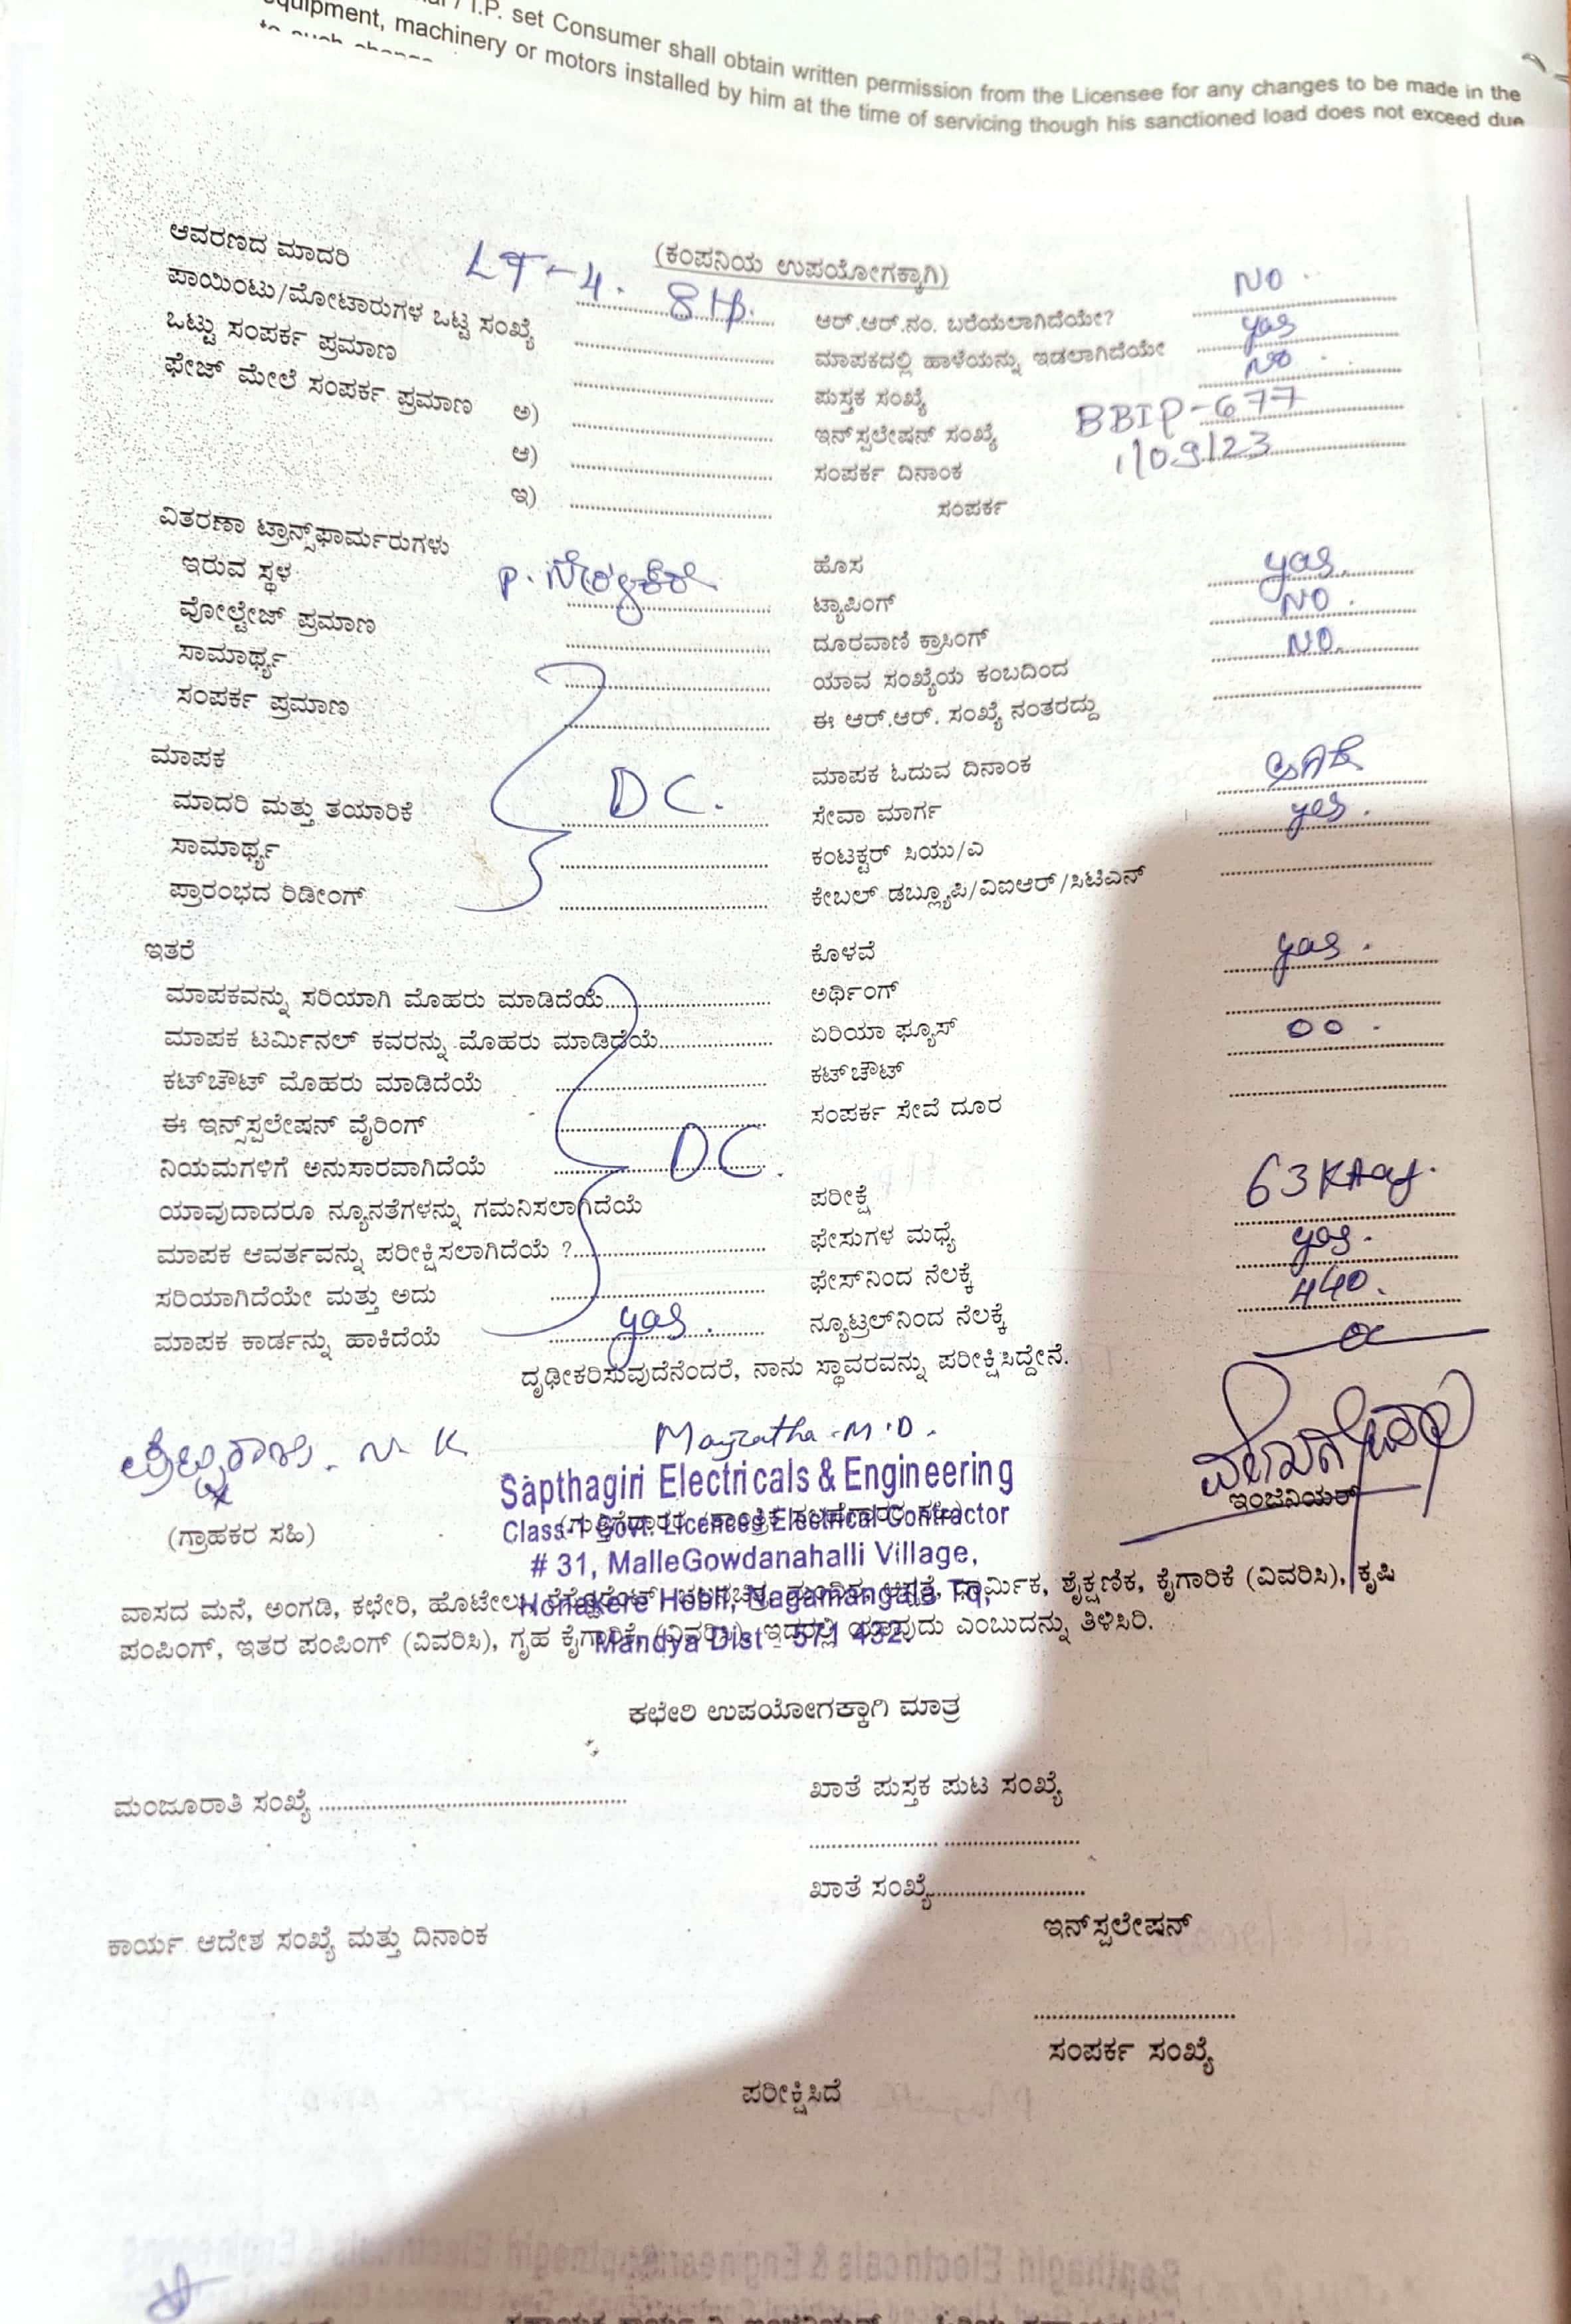 I.P. set Consumer shall obtain written permission from the Licensee for any changes to be made in the
equipment, machinery or motors installed by him at the time of servicing though his sanctioned load does not exceed due
to such change
(ಕಂಪನಿಯ ಉಪಯೋಗಕ್ಕಾಗಿ)
ಆವರಣದ ಮಾದರಿ LT-4. 8HP.
ಪಾಯಿಂಟು/ಮೋಟಾರುಗಳ ಒಟ್ಟ ಸಂಖ್ಯೆ
ಒಟ್ಟು ಸಂಪರ್ಕ ಪ್ರಮಾಣ
ಫೇಜ್ ಮೇಲೆ ಸಂಪರ್ಕ ಪ್ರಮಾಣ ಅ)
ಆ)
ಇ)
ಆರ್.ಆರ್.ನಂ. ಬರೆಯಲಾಗಿದೆಯೇ? NO.
ಮಾಪಕದಲ್ಲಿ ಹಾಳೆಯನ್ನು ಇಡಲಾಗಿದೆಯೇ yas
ಪುಸ್ತಕ ಸಂಖ್ಯೆ NO.
ಇನ್‌ಸ್ಪಲೇಷನ್ ಸಂಖ್ಯೆ BBIP-677
ಸಂಪರ್ಕ ದಿನಾಂಕ 1/09/23
ಸಂಪರ್ಕ
ವಿತರಣಾ ಟ್ರಾನ್ಸ್‌ಫಾರ್ಮರುಗಳು
ಇರುವ ಸ್ಥಳ P.
ವೋಲ್ಟೇಜ್ ಪ್ರಮಾಣ
ಸಾಮಾರ್ಥ್ಯ
ಸಂಪರ್ಕ ಪ್ರಮಾಣ
ಹೊಸ yas.
ಟ್ಯಾಪಿಂಗ್ NO.
ದೂರವಾಣಿ ಕ್ರಾಸಿಂಗ್ NO.
ಯಾವ ಸಂಖ್ಯೆಯ ಕಂಬದಿಂದ
ಈ ಆರ್.ಆರ್. ಸಂಖ್ಯೆ ನಂತರದ್ದು
ಮಾಪಕ
ಮಾದರಿ ಮತ್ತು ತಯಾರಿಕೆ DC.
ಸಾಮಾರ್ಥ್ಯ
ಪ್ರಾರಂಭದ ರಿಡೀಂಗ್
ಮಾಪಕ ಓದುವ ದಿನಾಂಕ
ಸೇವಾ ಮಾರ್ಗ yes.
ಕಂಟಕ್ಟರ್ ಸಿಯು/ಎ
ಕೇಬಲ್ ಡಬ್ಲ್ಯೂಪಿ/ವಿಐಆರ್/ಸಿಟಿಎನ್
ಇತರೆ
ಮಾಪಕವನ್ನು ಸರಿಯಾಗಿ ಮೊಹರು ಮಾಡಿದೆಯೆ
ಮಾಪಕ ಟರ್ಮಿನಲ್ ಕವರನ್ನು ಮೊಹರು ಮಾಡಿದೆಯೆ
ಕಟ್‌ಚೌಟ್ ಮೊಹರು ಮಾಡಿದೆಯೆ
ಈ ಇನ್ಸ್‌ಸ್ಪಲೇಷನ್ ವೈರಿಂಗ್
ನಿಯಮಗಳಿಗೆ ಅನುಸಾರವಾಗಿದೆಯೆ DC.
ಯಾವುದಾದರೂ ನ್ಯೂನತೆಗಳನ್ನು ಗಮನಿಸಲಾಗಿದೆಯೆ
ಮಾಪಕ ಆವರ್ತವನ್ನು ಪರೀಕ್ಷಿಸಲಾಗಿದೆಯೆ ?
ಸರಿಯಾಗಿದೆಯೇ ಮತ್ತು ಅದು
ಮಾಪಕ ಕಾರ್ಡನ್ನು ಹಾಕಿದೆಯೆ yas.
ಕೊಳವೆ yas.
ಅರ್ಥಿಂಗ್
ಏರಿಯಾ ಫ್ಯೂಸ್ 00.
ಕಟ್‌ಚೌಟ್
ಸಂಪರ್ಕ ಸೇವೆ ದೂರ
ಪರೀಕ್ಷೆ
ಫೇಸುಗಳ ಮಧ್ಯೆ yas.
ಫೇಸ್‌ನಿಂದ ನೆಲಕ್ಕೆ 440.
ನ್ಯೂಟ್ರಲ್‌ನಿಂದ ನೆಲಕ್ಕೆ
ದೃಢೀಕರಿಸುವುದೆನೆಂದರೆ, ನಾನು ಸ್ಥಾವರವನ್ನು ಪರೀಕ್ಷಿಸಿದ್ದೇನೆ.
N. K
(ಗ್ರಾಹಕರ ಸಹಿ)
M.D.
Sapthagiri Electricals & Engineering
Class-1 Govt. Licences Electrical Contractor
# 31, MalleGowdanahalli Village,
Honakere Hobli, Nagamangala Tq,
Mandya Dist - 571 432.
ಇಂಜಿನಿಯರ್
ವಾಸದ ಮನೆ, ಅಂಗಡಿ, ಕಛೇರಿ, ಹೊಟೇಲು, ಧಾರ್ಮಿಕ, ಶೈಕ್ಷಣಿಕ, ಕೈಗಾರಿಕೆ (ವಿವರಿಸಿ), ಕೃಷಿ
ಪಂಪಿಂಗ್, ಇತರ ಪಂಪಿಂಗ್ (ವಿವರಿಸಿ), ಗೃಹ ಕೈಗಾರಿಕೆ, (ವಿವರಿಸಿ), ಇದರಲ್ಲಿ ಯಾವುದು ಎಂಬುದನ್ನು ತಿಳಿಸಿರಿ.
ಕಛೇರಿ ಉಪಯೋಗಕ್ಕಾಗಿ ಮಾತ್ರ
ಮಂಜೂರಾತಿ ಸಂಖ್ಯೆ
ಖಾತೆ ಪುಸ್ತಕ ಪುಟ ಸಂಖ್ಯೆ
ಖಾತೆ ಸಂಖ್ಯೆ
ಕಾರ್ಯ ಆದೇಶ ಸಂಖ್ಯೆ ಮತ್ತು ದಿನಾಂಕ
ಇನ್‌ಸ್ಪಲೇಷನ್
ಸಂಪರ್ಕ ಸಂಖ್ಯೆ
ಪರೀಕ್ಷಿಸಿದೆ